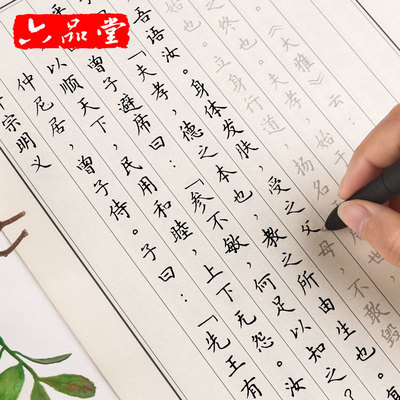 六品堂
宗明义
仲尼居，曾子侍。子曰：「先王有
以顺天下，民用和睦，上下无怨。汝
曾子避席曰：「参不敏，何足以知之
「夫孝，德之本也，教之所由生也。
吾语汝。身体发肤，受之父母，不敢毁
始也。立身行道，扬名
也。夫孝，始于
《大雅》云：